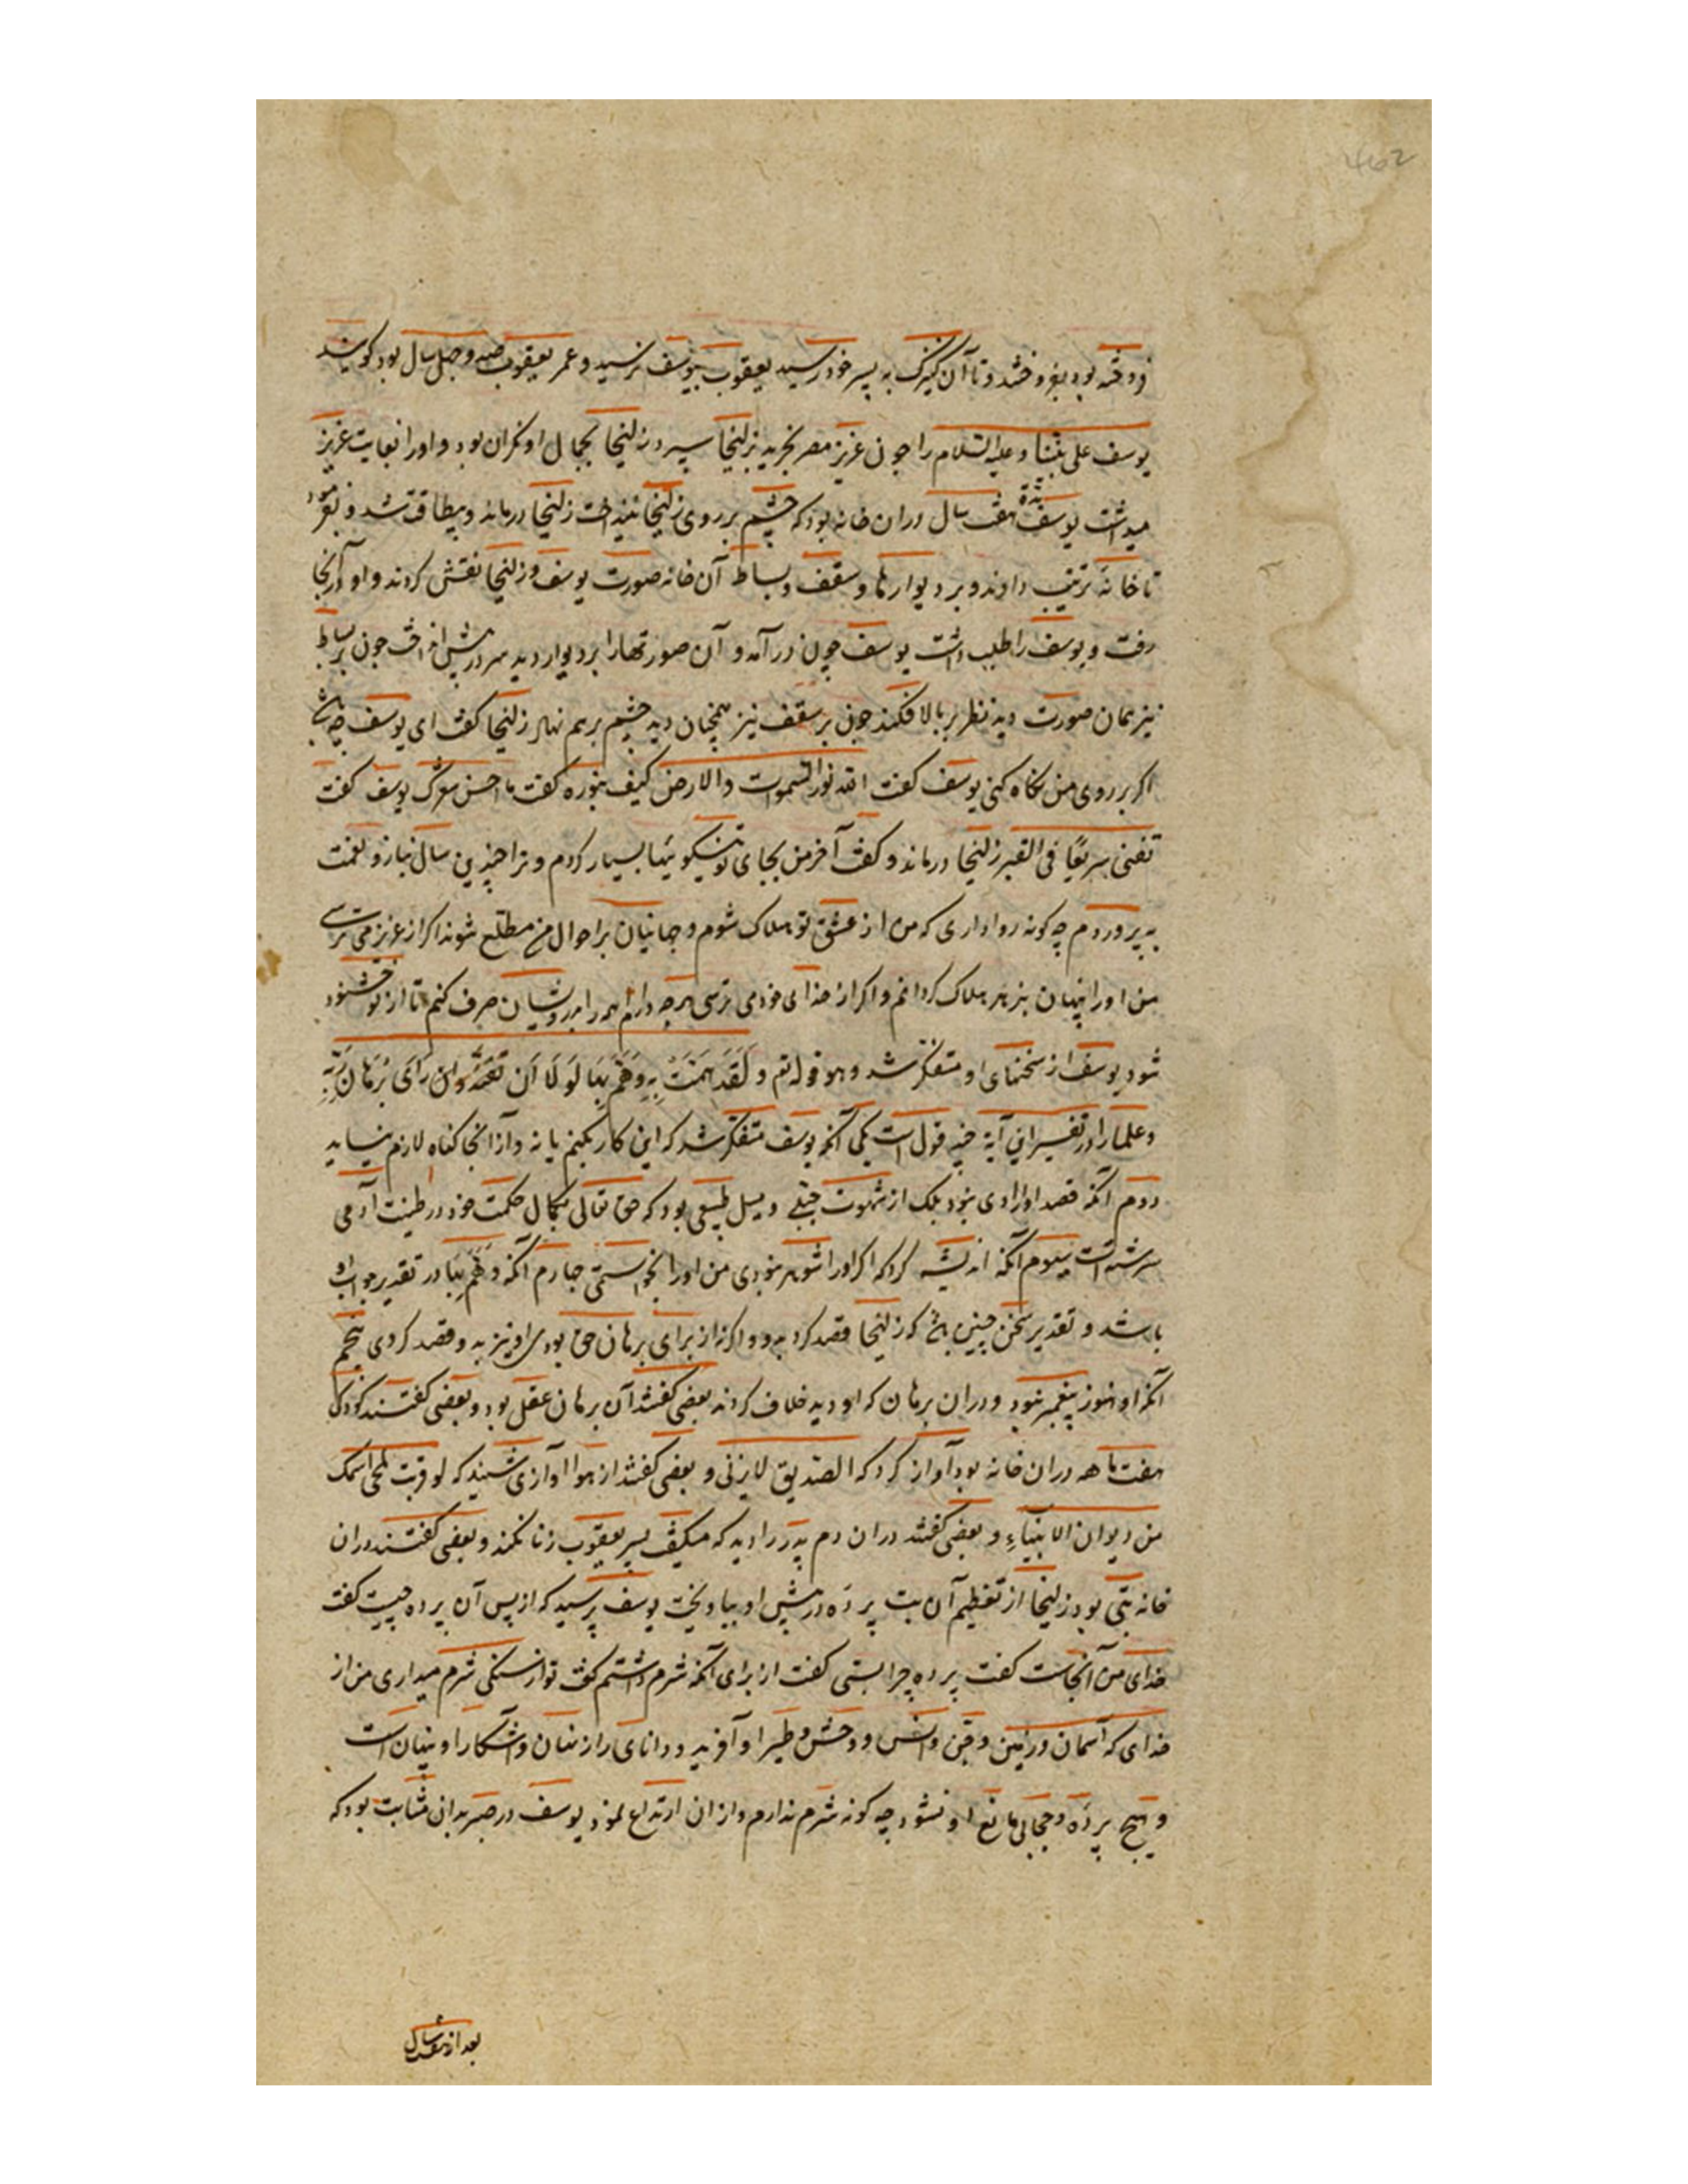 462
فروخته بود بفروختند و تا آن کنیزک به پسر خود رسید یعقوب بیوسف نرسید و عمر یعقوب صد و چهل سال بود کویند
یوسف علی نبینا و علیه السلام را چون عزیز مصر بخرید بزلیخا سپرد زلیخا بجمال او نکران بود و او را بغایت عزیز
میداشت یوسف هفت سال دران خانه بود که چشم بر روی زلیخا نینداخت زلیخا درماند و بیطاقت شد و بفرمود
تا خانهٔ ترتیب دادند و بر دیوارها و سقف و بساط آن خانه صورت یوسف و زلیخا نقش کردند و او در آنجا
رفت و یوسف را طلب داشت یوسف چون درآمد و آن صورتها را بر دیوار دید سر در پیش انداخت چون بر بساط
نیز همان صورت دید نظر بر بالا فکند چون بر سقف نیز همچنان دید چشم برهم نهاد زلیخا گفت ای یوسف چه باشد
اکر بر روی من نکاه کنی یوسف کفت الله نور السموات والارض کیف بنوره کفت ما احسن شعرک یوسف کفت
تفنی سریعًا فی القبر زلیخا درماند و کفت آخر من بجای تو نیکوئیها بسیار کردم و ترا چندین سال بناز و نعمت
به پروردم چه کونه روا داری که من از عشق تو هلاک شوم و جهانیان بر احوال من مطلع شوند اکر از عزیز می ترسی
من او را پنهان بزهر هلاک کردانم و اکر از خدای خود می ترسی هرچه دارم همه را بدرویشان صرف کنم تا از تو خشنود
شود یوسف از سخنهای او متفکر شد و هو قوله تع وَلَقَدْ هَمَّتْ بِهِ وَهَمَّ بِهَا لَوْلَا أَن رَأَى بُرْهَانَ رَبِّهِ
و علما را در تفسیر این آیة چند قول است یکی آنکه یوسف متفکر شد که این کار بکنم یا نه و از آنجا کناه لازم نیاید
دوم آنکه قصد او ارادی نبود بلک از شهوت جبلی و میل طبیعی بود که حق تعالی بکمال حکمت خود در طینت آدمی
سرشته است سیوم آنکه اندیشه کرد که اکر او را شوهر نبودی من او را بخواستمی چهارم آنکه وَهَمَّ بِهَا در تقدیر جواب او
باشد و تقدیر سخن چنین باشد که زلیخا قصد کرد به وو اکر نه از برای برهان حق بودی او نیز به وقصد کردی پنجم
آنکه او هنوز پیغمبر نبود و دران برهان که او دید خلاف کردند بعضی کفتند آن برهان عقل بود و بعضی کفتند کودکی
هفت ماهه دران خانه بود آواز کرد که الصدیق لا یزنی و بعضی کفتند از هوا آوازی شنید که لو قربت لمحی اسمک
من دیوان الانبیاءِ و بعضی کفتند دران دم پدر را دید که میکفت پسر یعقوب زنا نکند و بعضی کفتند دران
خانه بتی بود زلیخا از تعظیم آن بت پردهٔ در پیش او بیاویخت یوسف پرسید که از پس آن پرده چیست کفت
خدای من آنجاست کفت پرده چرا بستی کفت از برای آنکه شرم داشتم کفت تو از سنکی شرم میداری من از
خدای که آسمان و زمین و جن وانس و وحش و طیر او آفرید و دانای راز نهان و آشکارا و نهان است
و هیچ پردهٔ و حجابی مانع او نشود چه کونه شرم ندارم و ازان ارتداع نمود یوسف در صبر بدان مثابت بود که
بعد از هفت سال